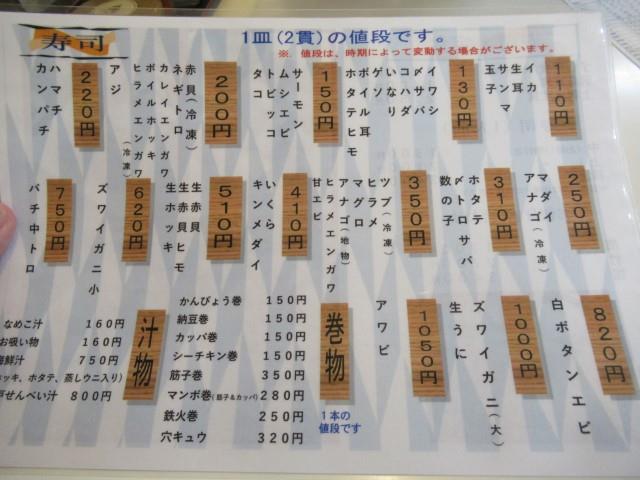 寿司
1皿(2貫)の値段です。
※. 値段は、時期によって変動する場合がございます。
110円
イカ
生耳
サンマ
玉子
130円
イワシ
〆サバ
コハダ
いなり
ゲソ
ボイル耳
ホタテヒモ
150円
サーモン
ムシエビ
トビッコ
タコ
200円
赤貝(冷凍)
ネギトロ
カレイエンガワ
ボイルホッキ
ヒラメエンガワ(冷凍)
220円
アジ
ハマチ
カンパチ
250円
マダイ
アナゴ(冷凍)
310円
ホタテ
〆トロサバ
数の子
350円
ツブ(冷凍)
ヒラメ
マグロ
アナゴ(地物)
ヒラメエンガワ
甘エビ
410円
いくら
キンメダイ
510円
生赤貝
生赤貝ヒモ
生ホッキ
620円
ズワイガニ小
750円
バチ中トロ
820円
白ボタンエビ
1000円
ズワイガニ(大)
生うに
1050円
アワビ
巻物
1本の
値段です
かんぴょう巻 150円
納豆巻 150円
カッパ巻 150円
シーチキン巻 150円
筋子巻 350円
マンボ巻(筋子&カッパ) 280円
鉄火巻 250円
穴キュウ 320円
汁物
なめこ汁 160円
お吸い物 160円
海鮮汁 750円
ホッキ、ホタテ、蒸しウニ入り)
せんべい汁 800円